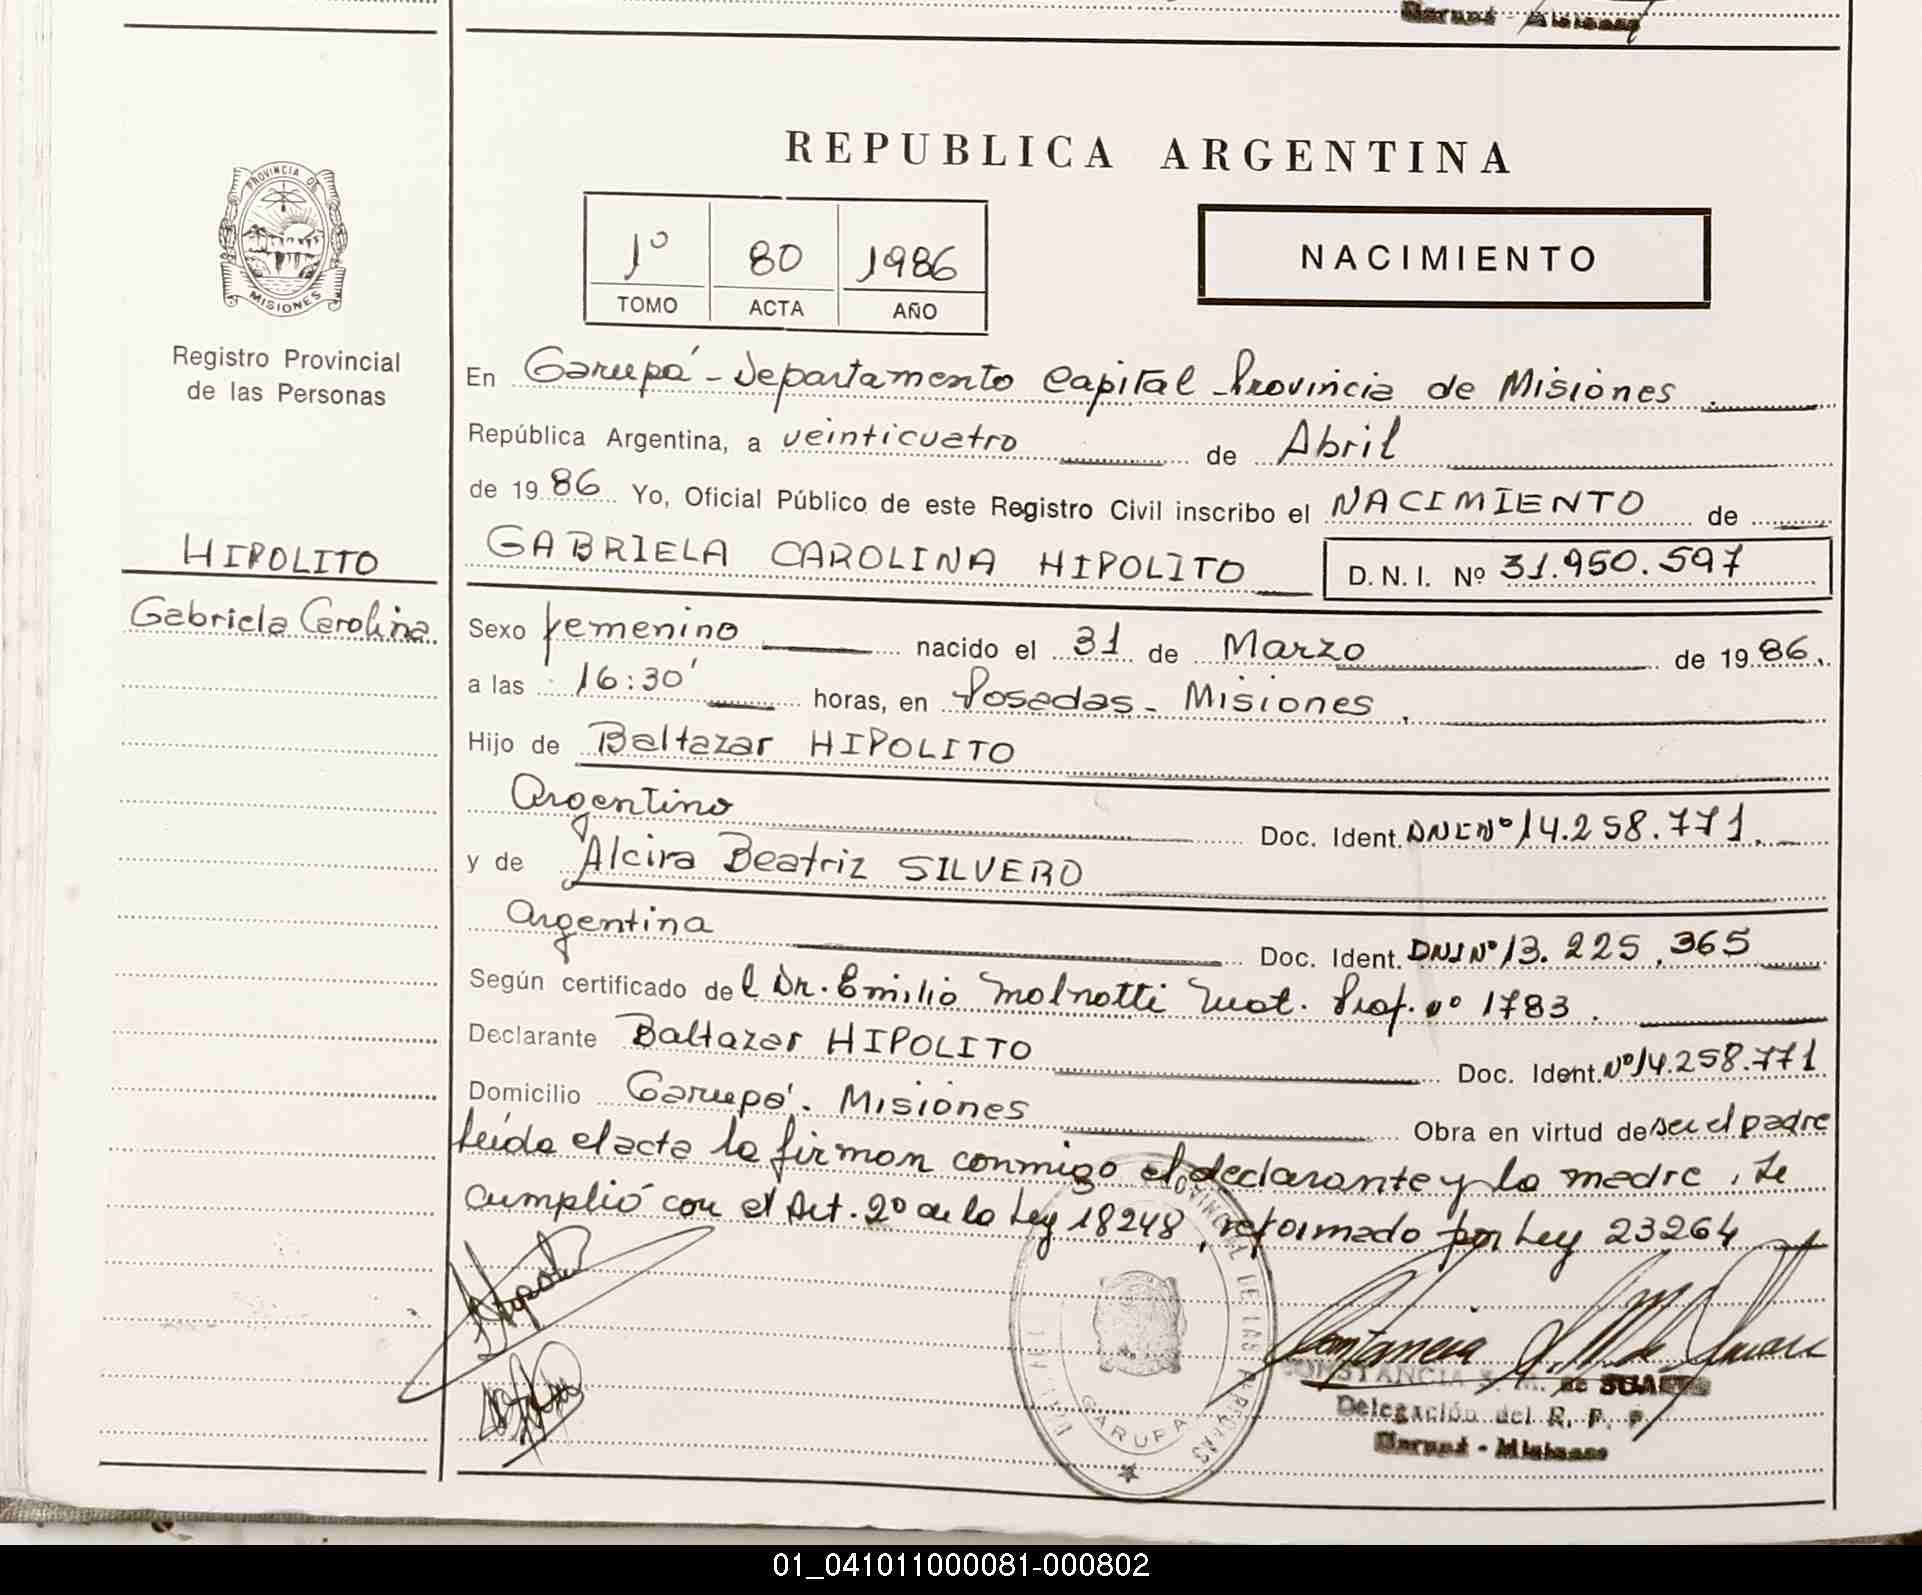 Garupá - Misiones
REPUBLICA ARGENTINA
PROVINCIA DE
MISIONES
1º 80 1986
TOMO ACTA AÑO
NACIMIENTO
Registro Provincial
de las Personas
En Garupá - Departamento Capital - Provincia de Misiones.
República Argentina, a veinticuatro de Abril
de 1986 Yo, Oficial Público de este Registro Civil inscribo el NACIMIENTO de
HIPOLITO
GABRIELA CAROLINA HIPOLITO D.N.I. Nº 31.950.597
Gabriela Carolina
Sexo femenino nacido el 31 de Marzo de 1986.
a las 16:30' horas, en Posadas - Misiones.
Hijo de Baltazar HIPOLITO
Argentino Doc. Ident. DNI Nº 14.258.771.
y de Alcira Beatriz SILVERO
Argentina Doc. Ident. DNI Nº 13.225.365
Según certificado del Dr. Emilio Molnotti Mat. Prof. nº 1783.
Declarante Baltazar HIPOLITO Doc. Ident. Nº 14.258.771
Domicilio Garupá - Misiones Obra en virtud de ser el padre
Leída el acta la firman conmigo el declarante y la madre, Se
cumplió con el Art. 2º de la Ley 18248, reformado por Ley 23264
CONSTANCIA S. M. de SUAREZ
Delegación del R. P. P.
Garupá - Misiones
PROVINCIAL DE LAS PERSONAS
GARUPA
01_041011000081-000802